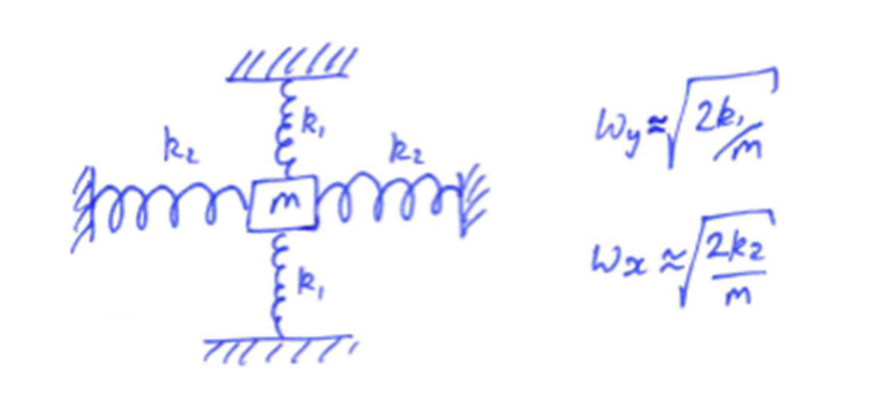 k₁
k₂
k₂
m
k₁
ω_y ≈ √(2k₁/m)
ω_x ≈ √(2k₂/m)